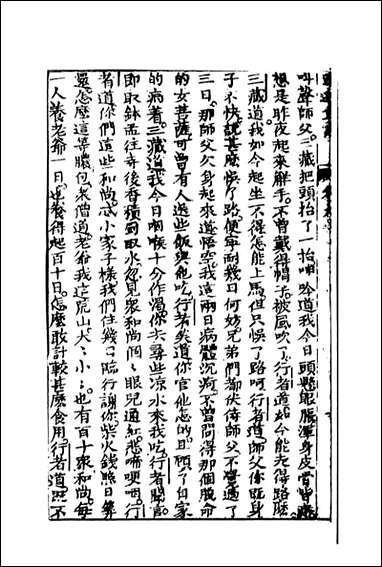 叫聲師父三藏把頭抬了一抬呻吟道我今日頭懸眼脹渾身皮骨皆疼
想是昨夜起來解手不曾戴得帽子被風吹了行者道如今能走得路麽
三藏道我如今起坐不得怎能上馬但只悞了路呵行者道師父你既身
子不快說甚麽悞了路便寧耐幾日何妨兄弟們都伏侍師父不覺過了
三日那師父欠身起來道悟空我這兩日病體沉疴不曾問得那個脫命
的女菩薩可曾有人送些飯與他吃行者笑道你管他怎的且顧了自家
的病着三藏道我今日咽喉十分作渴你去尋些凉水來我吃行者聞言
即取鉢盂往寺後香積厨取水忽見衆和尚個個眼兒通紅悲啼哽咽行
者道你們這些和尚忒小家子樣我們住幾日臨行謝你柴火錢照日算
還怎麽這等膿包衆僧道老爺我這荒山大大小小也有百十衆和尚每
一人養老爺一日也養得起百十日怎麽敢計較甚麽食用行者道既不